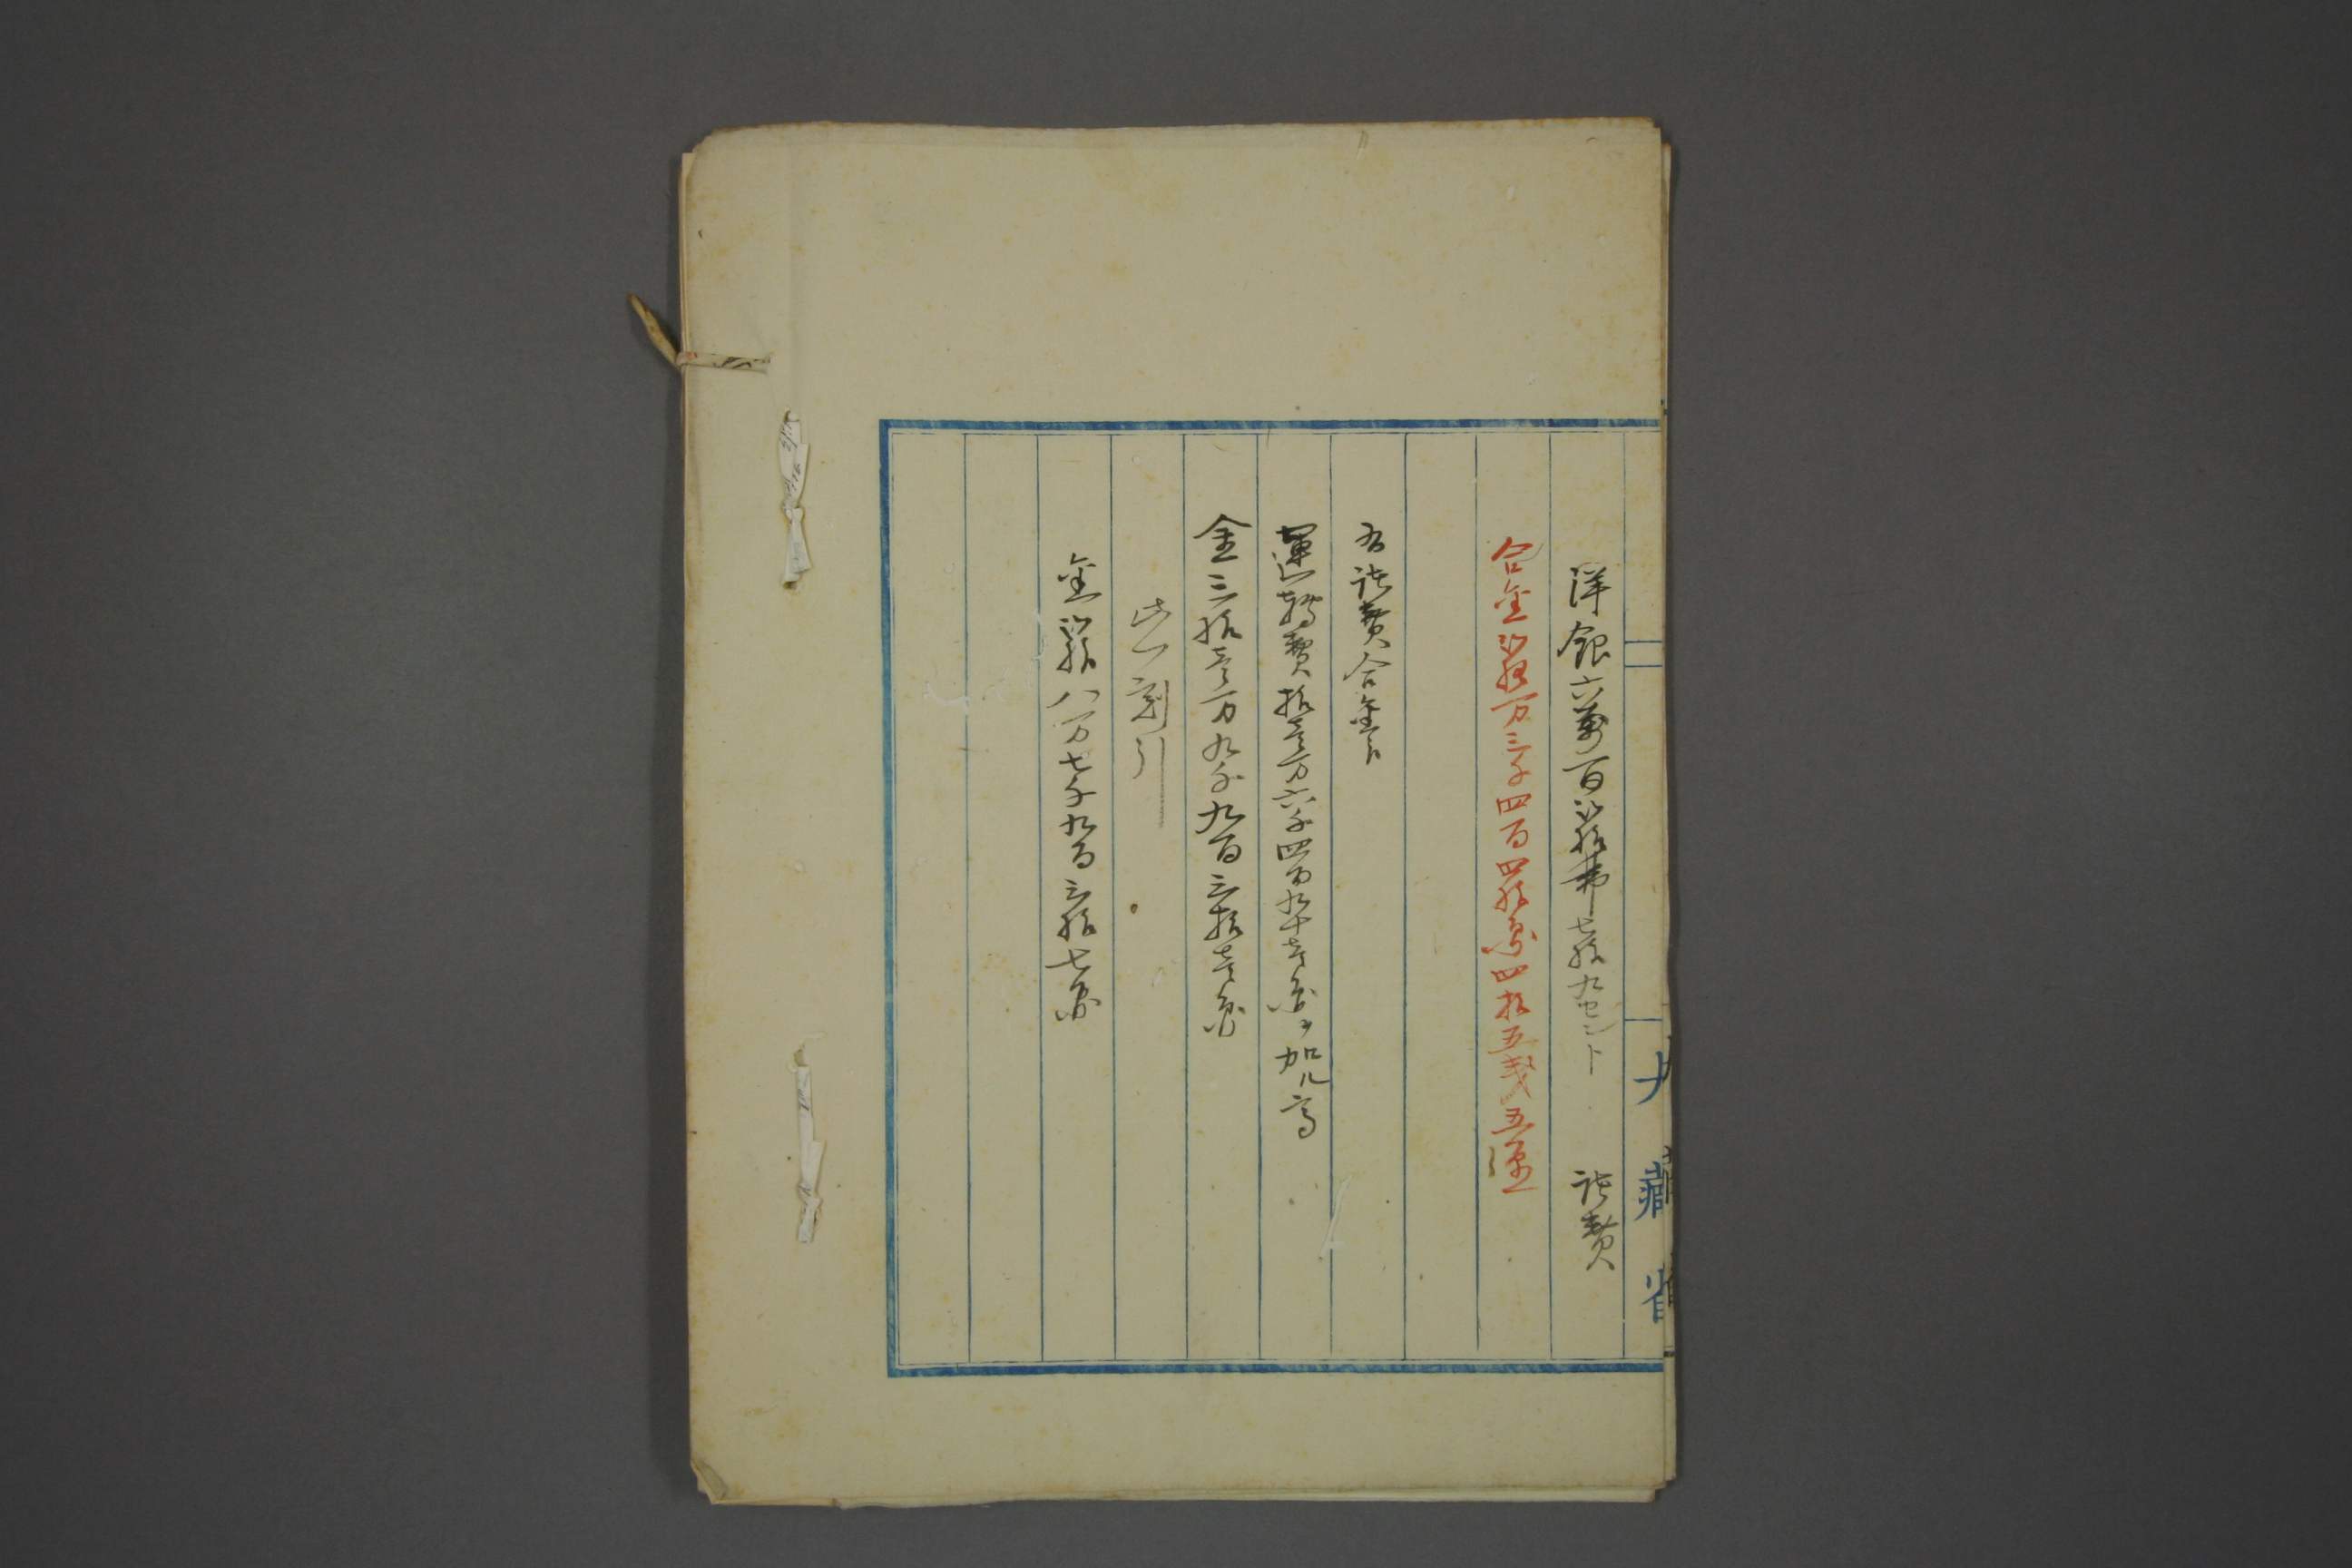 大藏省
洋銀六萬百弐拾弗七拾九セント 諸費
合金弐拾万三千四百四拾圓四拾五銭五厘
右諸費合金ト
運轉費拾壱万六千四百九十壱圓ヲ加ル高
金三拾壱万九千九百三拾壱圓
此一割引
金弐拾八万七千九百三拾七圓